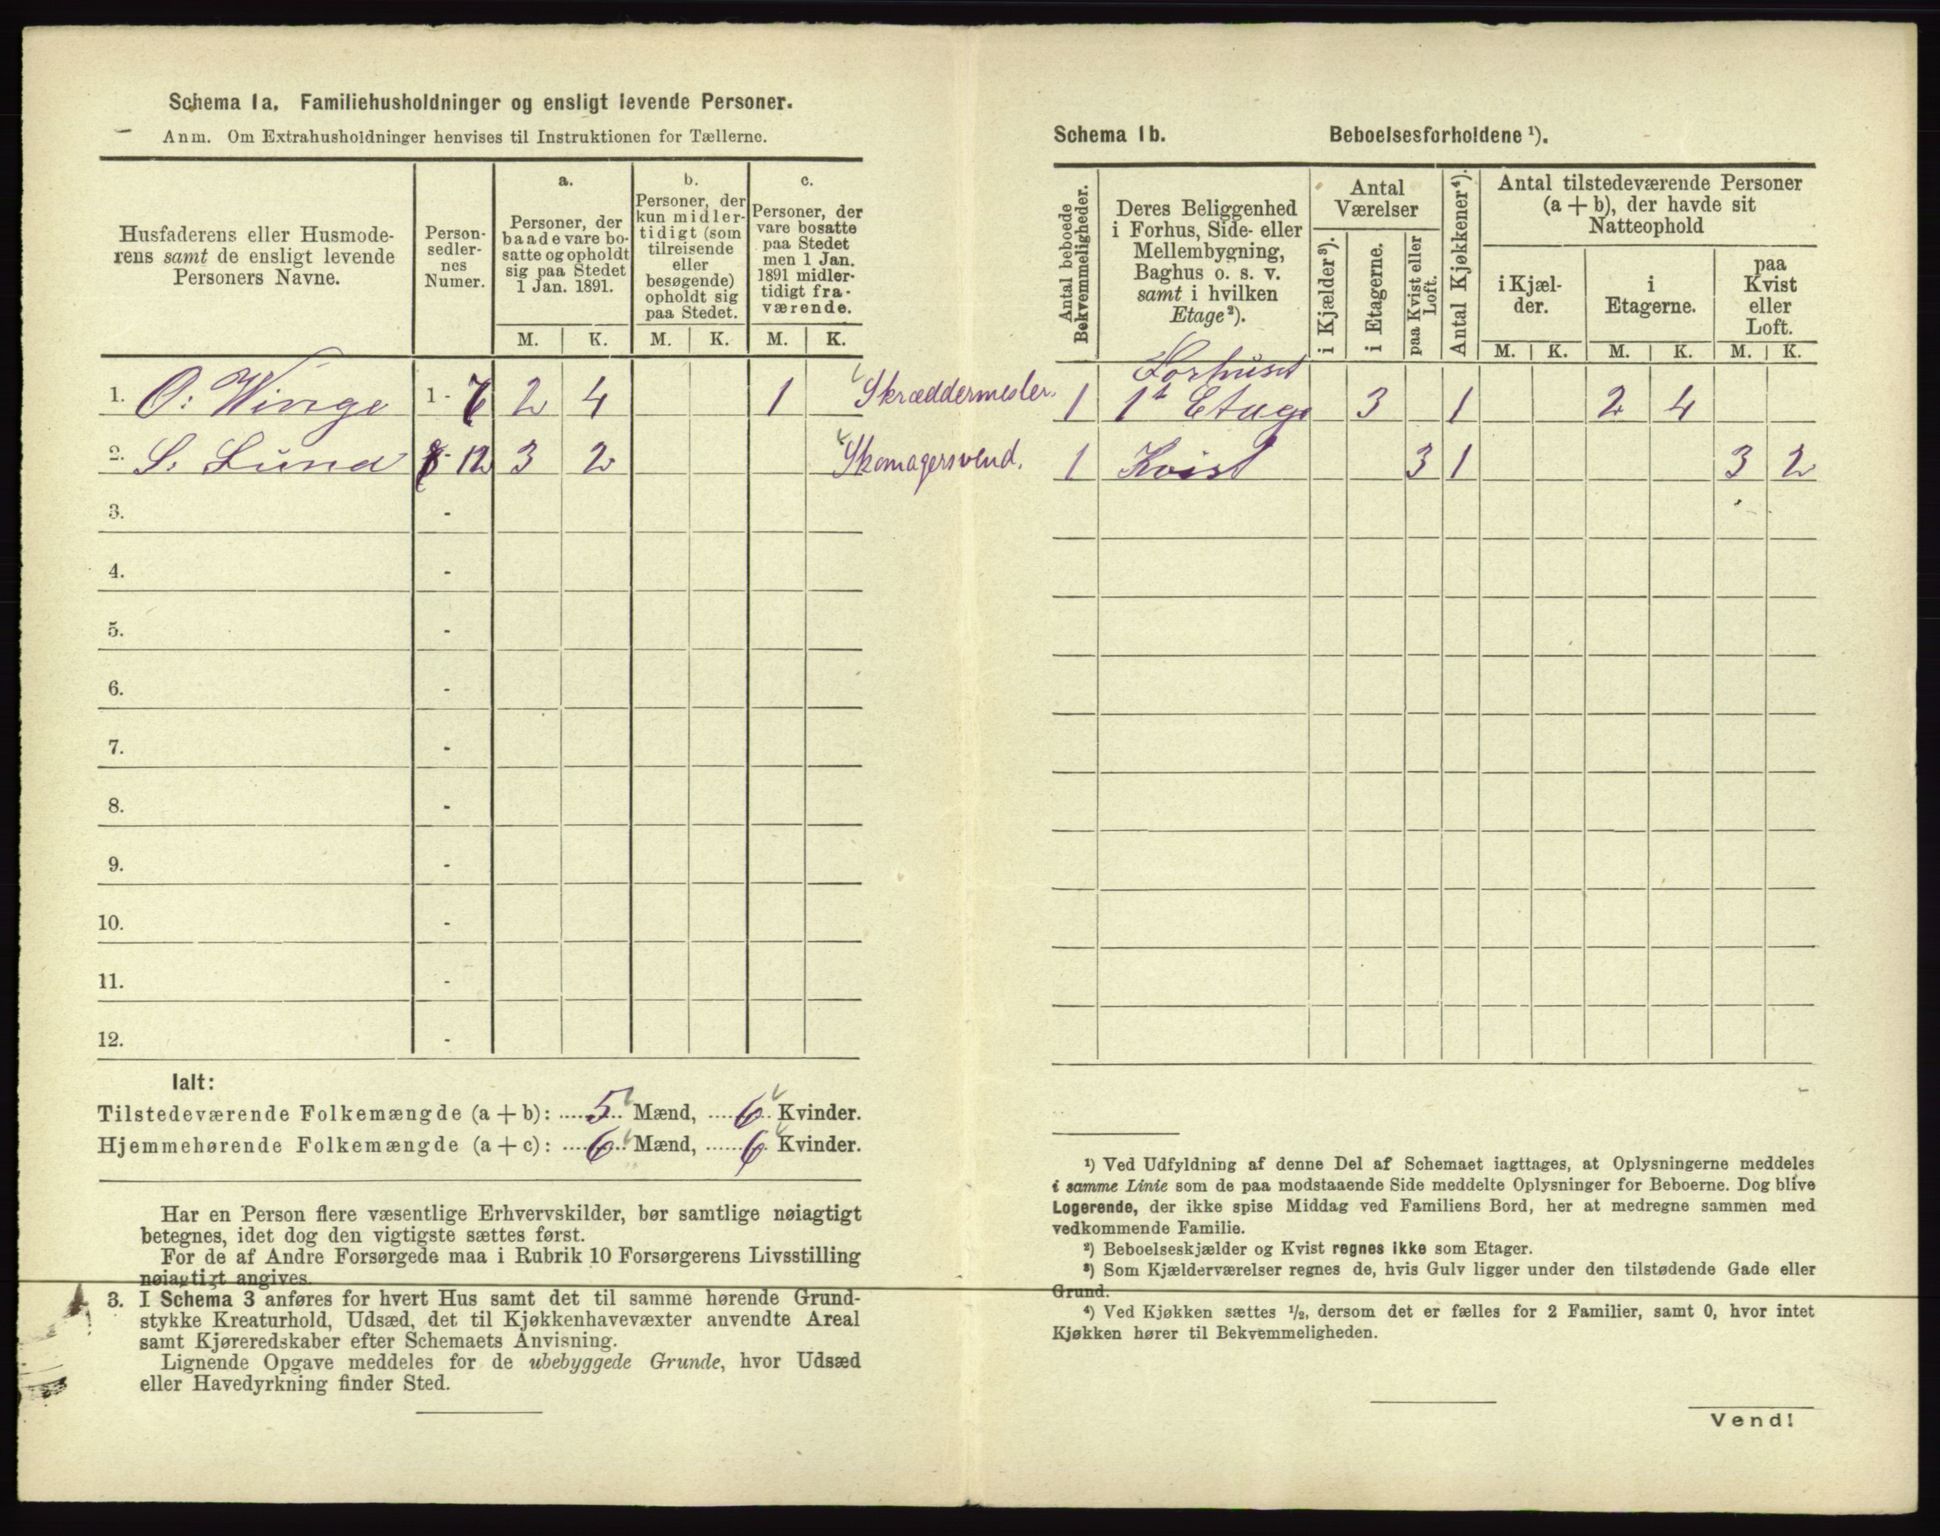 Schema 1a. Familiehusholdninger og ensligt levende Personer.
Anm. Om Extrahusholdninger henvises til Instruktionen for Tællerne.
Husfaderens eller Husmode-
rens samt de ensligt levende
Personers Navne.
Person-
sedler-
nes
Numer.
a.
Personer, der
baade vare bo-
satte og opholdt
sig paa Stedet
1 Jan. 1891.
b.
Personer, der
kun midler-
tidigt (som
tilreisende
eller
besøgende)
opholdt sig
paa Stedet.
c.
Personer, der
vare bosatte
paa Stedet
men 1 Jan.
1891 midler-
tidigt fra-
værende.
M. K. M. K. M. K.
1. O: Winge 1 - 7 2 4 1 Skræddermester.
2. S. Lund 8 - 12 3 2 Skomagersvend.
3. -
4. -
5. -
6. -
7. -
8. -
9. -
10. -
11. -
12. -
Ialt:
Tilstedeværende Folkemængde (a + b): 5 Mænd, 6 Kvinder.
Hjemmehørende Folkemængde (a + c): 6 Mænd, 6 Kvinder.
Har en Person flere væsentlige Erhvervskilder, bør samtlige nøiagtigt
betegnes, idet dog den vigtigste sættes først.
For de af Andre Forsørgede maa i Rubrik 10 Forsørgerens Livsstilling
nøiagtigt angives.
3. I Schema 3 anføres for hvert Hus samt det til samme hørende Grund-
stykke Kreaturhold, Udsæd, det til Kjøkkenhavevæxter anvendte Areal
samt Kjøreredskaber efter Schemaets Anvisning.
Lignende Opgave meddeles for de ubebyggede Grunde, hvor Udsæd
eller Havedyrkning finder Sted.
Schema 1b. Beboelsesforholdene ¹).
Antal beboede
Bekvemmeligheder.
Deres Beliggenhed
i Forhus, Side- eller
Mellembygning,
Baghus o. s. v.
samt i hvilken
Etage²).
Antal
Værelser
i Kjælder³).
i Etagerne.
paa Kvist eller
Loft.
Antal Kjøkkener⁴).
Antal tilstedeværende Personer
(a + b), der havde sit
Natteophold
i Kjæl-
der.
i
Etagerne.
paa
Kvist
eller
Loft.
M. K. M. K. M. K.
Forhuset
1 1ᵗ Etage 3 1 2 4
1 Kvist 3 1 3 2
¹) Ved Udfyldning af denne Del af Schemaet iagttages, at Oplysningerne meddeles
i samme Linie som de paa modstaaende Side meddelte Oplysninger for Beboerne. Dog blive
Logerende, der ikke spise Middag ved Familiens Bord, her at medregne sammen med
vedkommende Familie.
²) Beboelseskjælder og Kvist regnes ikke som Etager.
³) Som Kjælderværelser regnes de, hvis Gulv ligger under den tilstødende Gade eller
Grund.
⁴) Ved Kjøkken sættes ¹/₂, dersom det er fælles for 2 Familier, samt 0, hvor intet
Kjøkken hører til Bekvemmeligheden.
Vend!